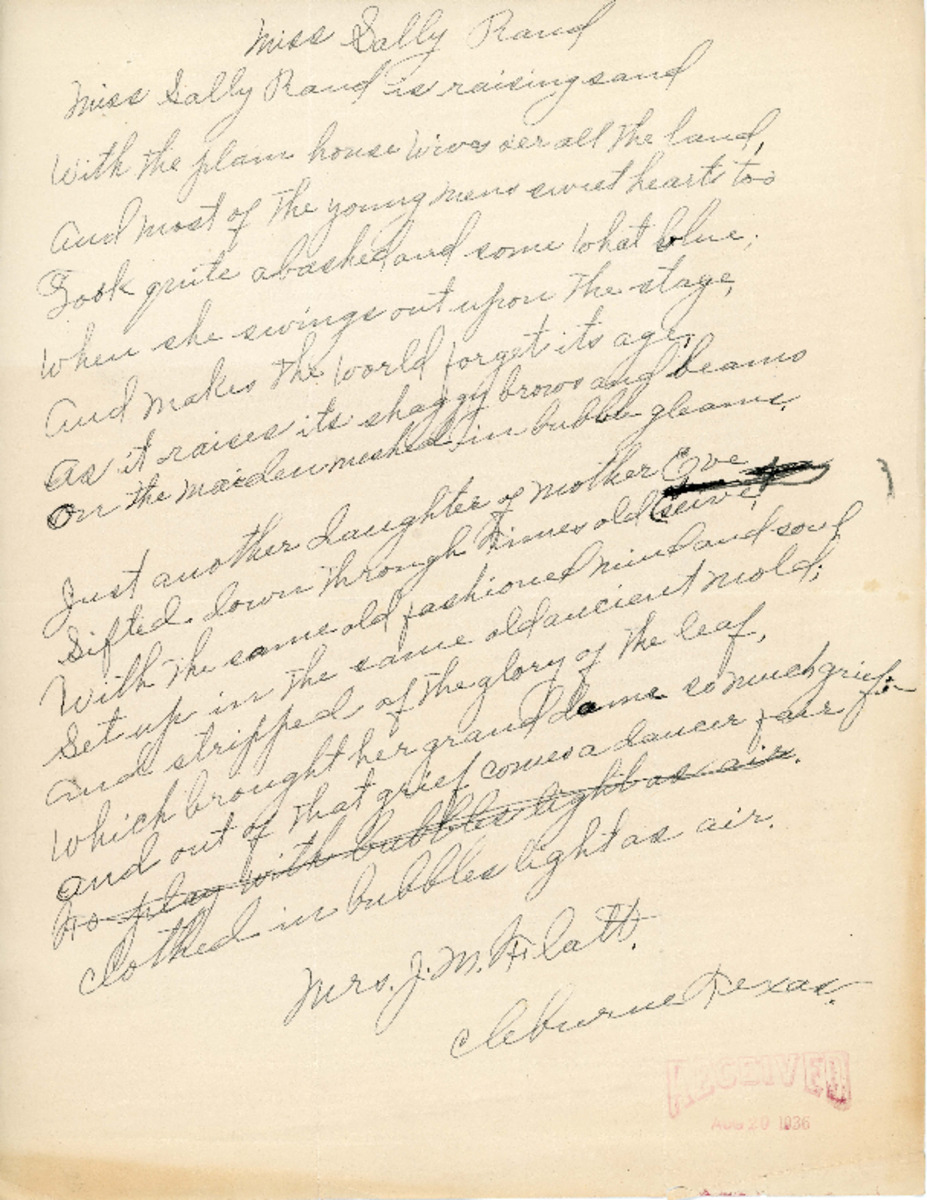 Miss Sally Rand
Miss Sally Rand is raising sand
With the plain house wives oer all the land,
And most of the young mens sweet hearts too
Look quite abashed and some what blue,
When she swings out upon the stage,
And makes the world forget its age,
As it raises its shaggy brows and beams
On the maiden meshed in bubble gleams.
Just another daughter of mother Eve
Sifted down through times old seive,
With the same old fashioned mind and soul
Set up in the same old ancient mold;
And stripped of the glory of the leaf,
Which brought her grand dame so much grief:-
And out of that grief comes a dancer fair
To play with bubbles light as air.
Clothed in bubbles light as air.
Mrs. J. M. Flatt.
Cleburne Texas.
RECEIVED
AUG 20 1936